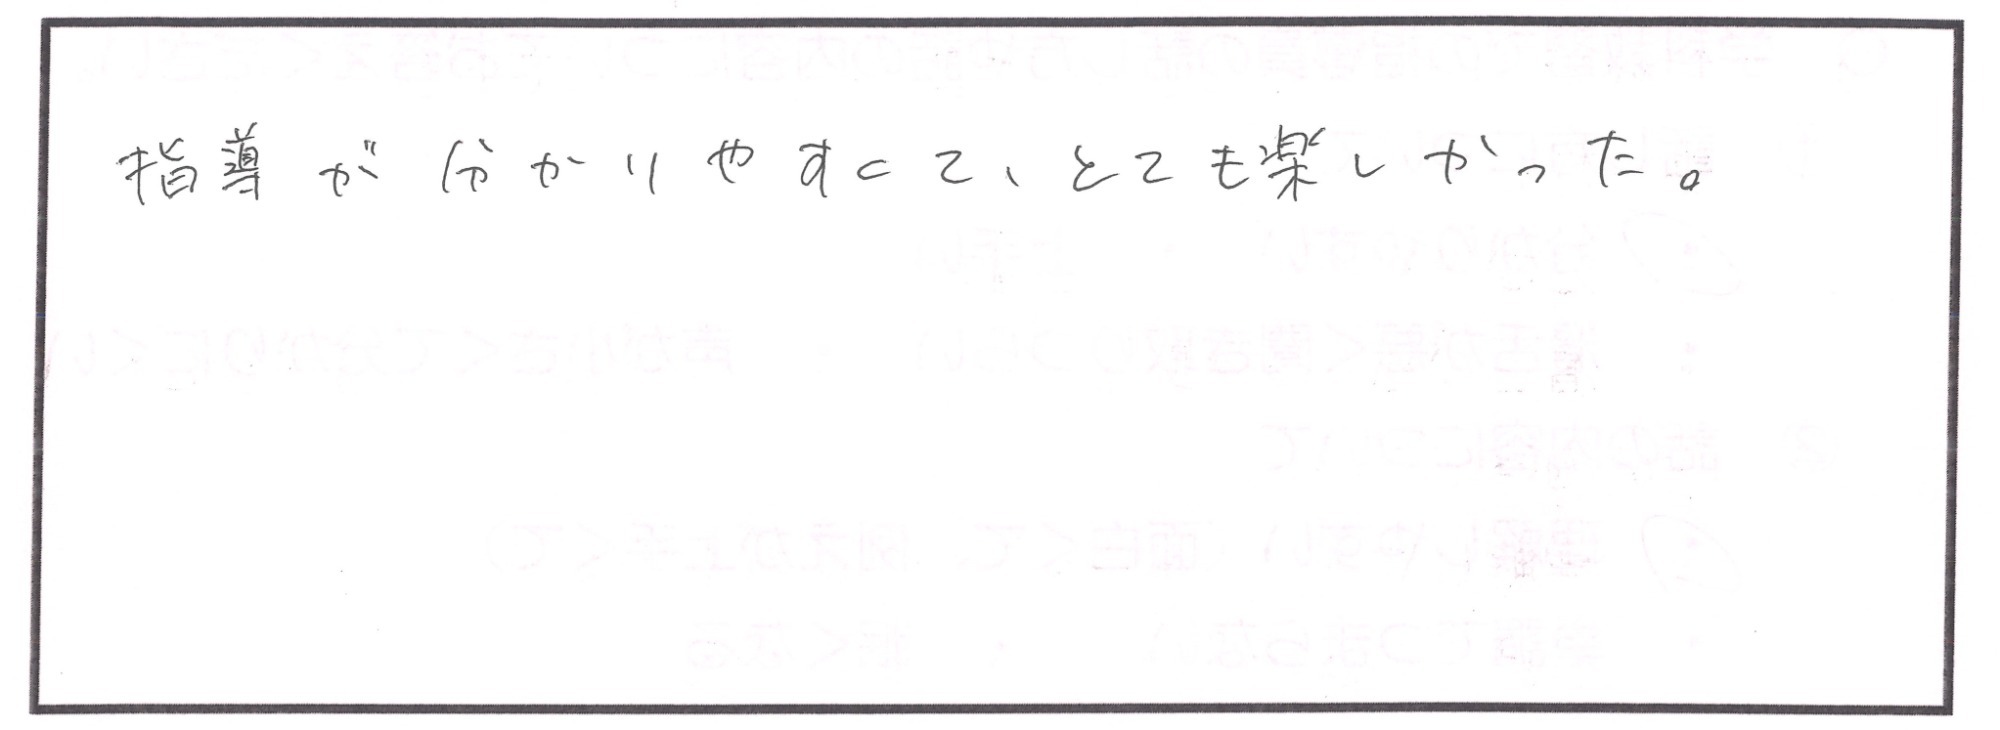 指導が分かりやすくて、とても楽しかった。